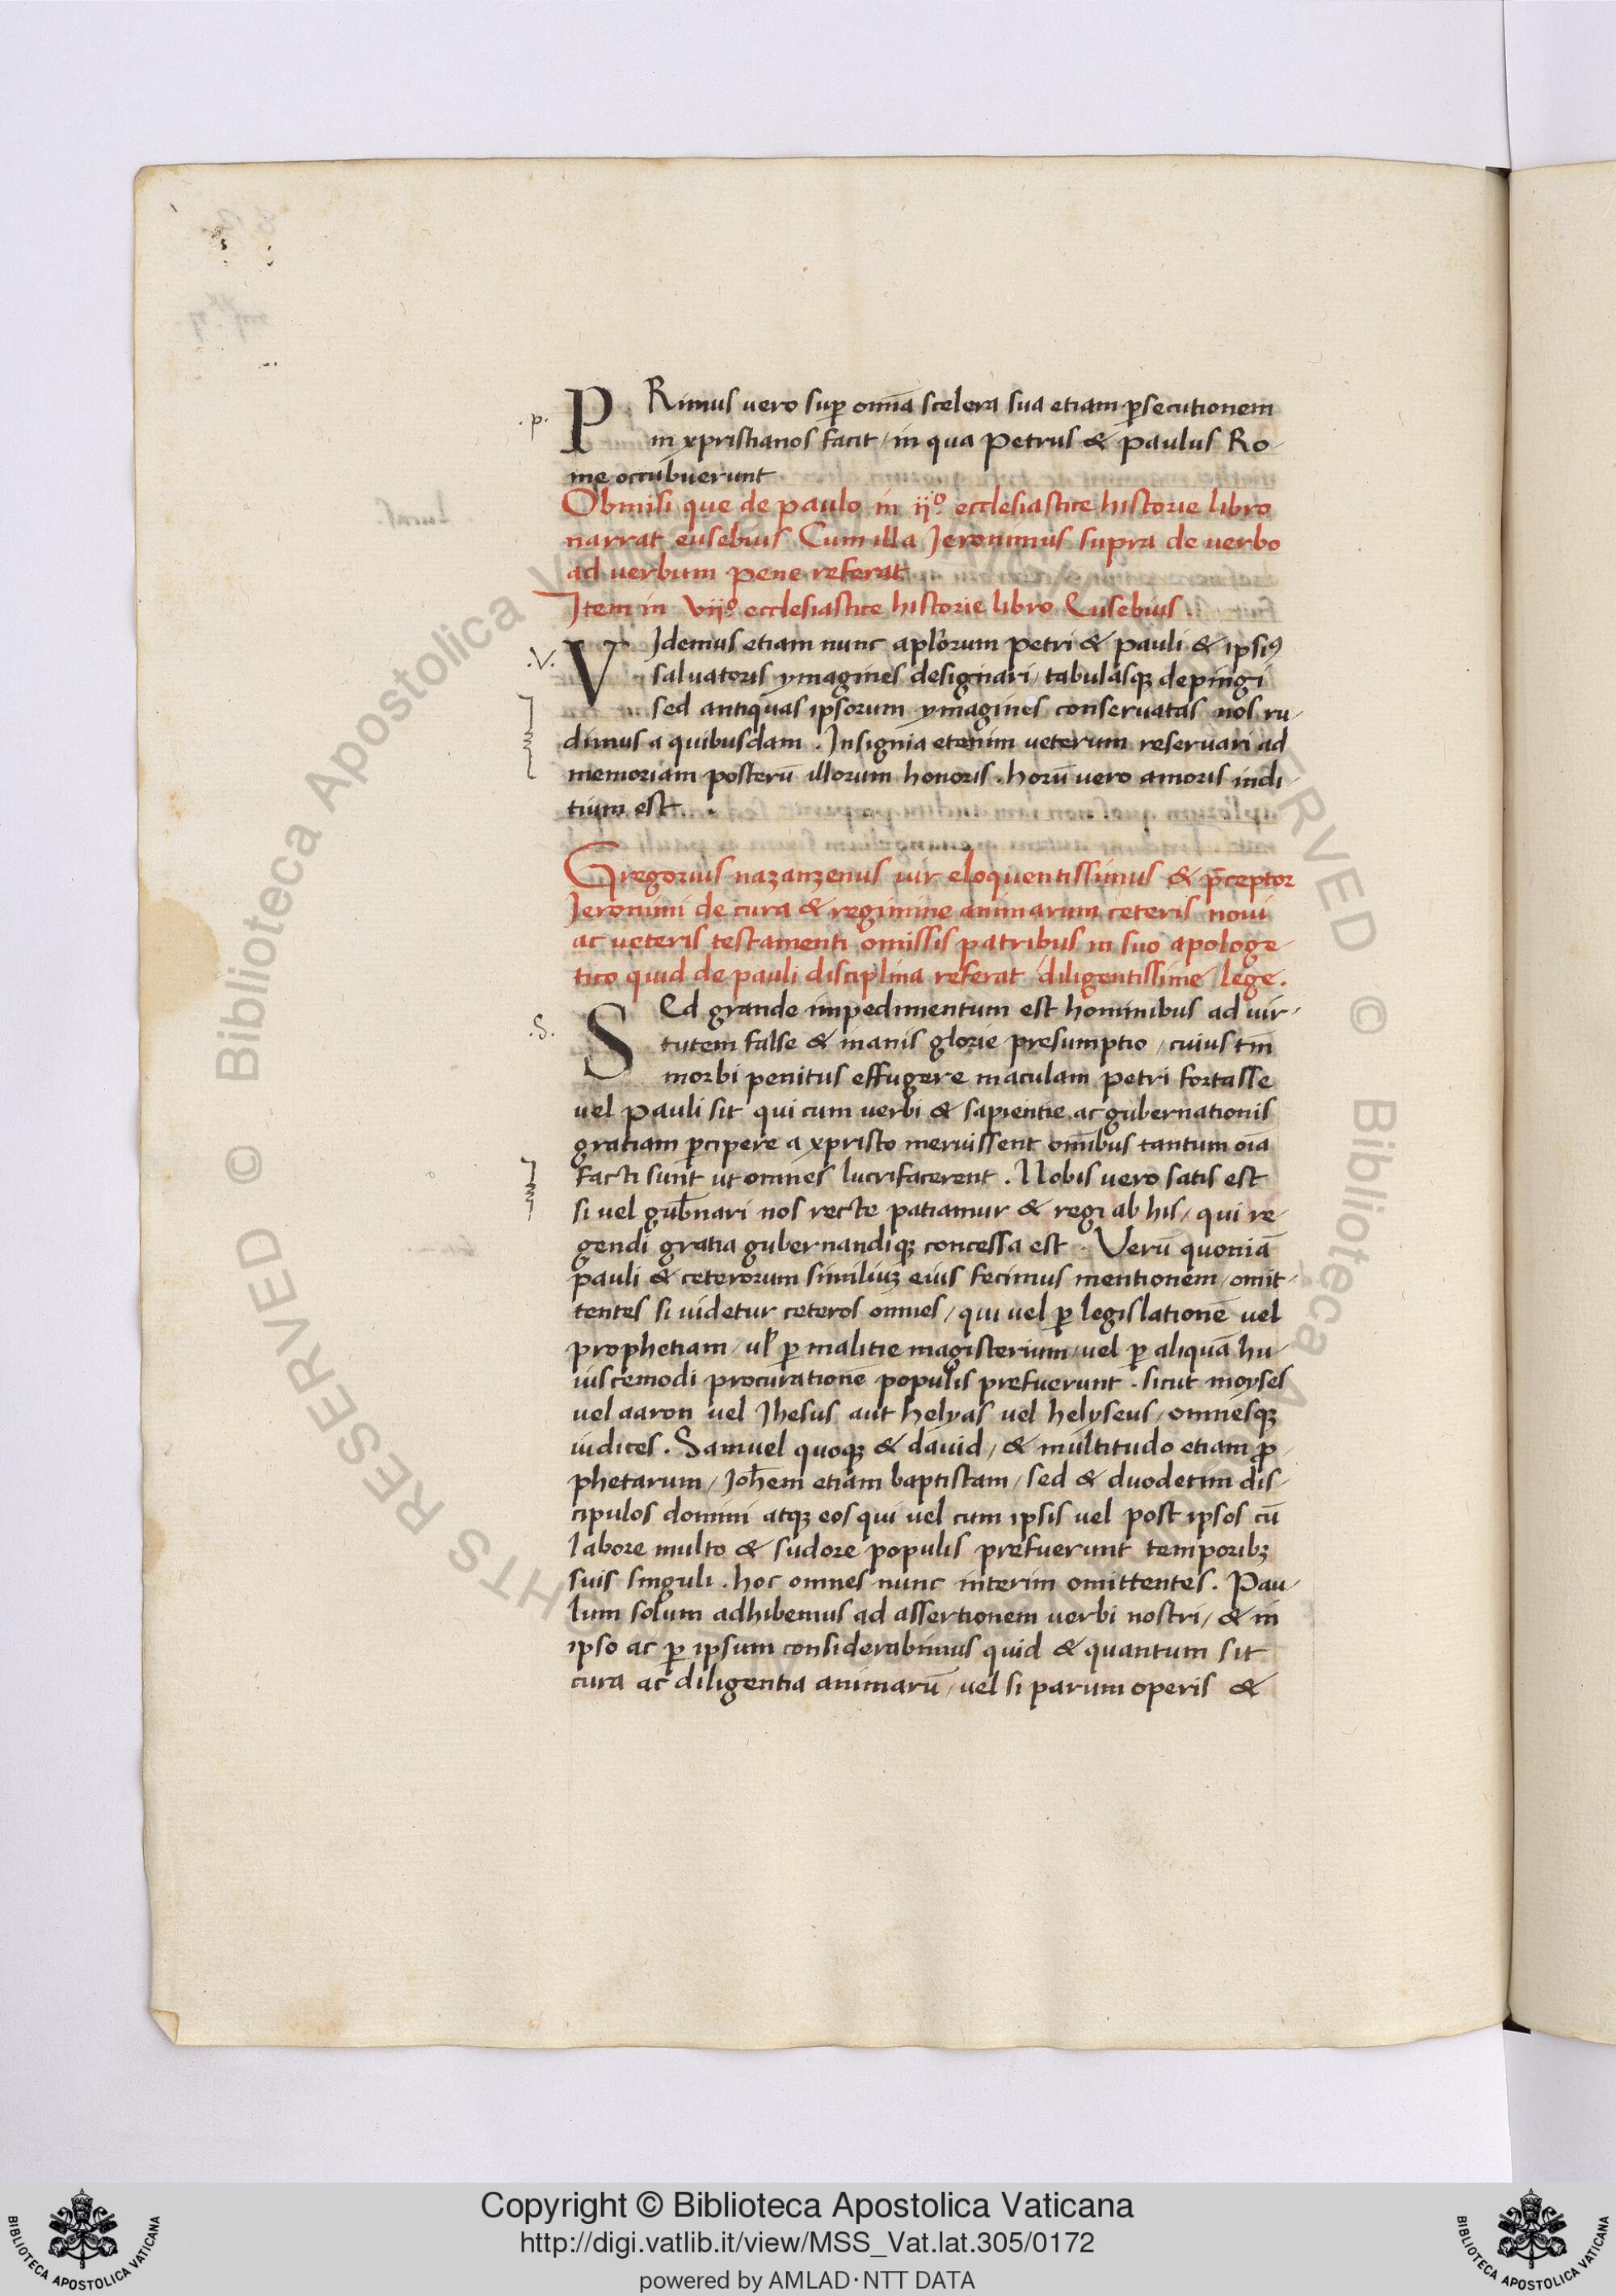 .p. PRimus vero sup̱ om̄ia scelera sua etiam p̱secutionem
in xpristianos facit / in qua Petrus & Paulus Ro-
me occubuerunt
Obmisi que de paulo in ijº. ecclesiastice historie libro
narrat eusebius Cum illa Jeronimus supra de verbo
ad verbum pene referat
Item in vijº ecclesiastice historie libro Eusebius.
.V. VIdemus etiam nunc apl'orum petri & pauli & ipsiꝰ
salvatoris ymagines designari / tabulasqꝫ depingi
sed antiquas ipsorum ymagines conservatas nos vi-
dimus a quibusdam . Insignia etenim veterum reservari ad
memoriam posterū illorum honoris . horū vero amoris indi-
tium est .
Gregorius nazanzenus vir eloquentissimus & p̄ceptor
Jeronimi de cura & regimine animarum ceteris novi
ac veteris testamenti omissis patribus in suo apologe-
tico quid de pauli disciplina referat diligentissime lege.
.S. SEd grande impedimentum est hominibus ad vir-
tutem false & inanis glorie presumptio / cuius tm̄
morbi penitus effugere maculam petri fortasse
vel pauli sit qui cum verbi & sapientie ac gubernationis
gratiam p̱cipere a xpristo meruissent omībus tantum oīa
facti sunt ut omnes lucrifacerent . Nobis vero satis est
si vel gub̄nari nos recte patiamur & regi ab his / qui re-
gendi gratia gubernandiqꝫ concessa est . Verū quoniā
pauli & ceterorum similiuꝫ eius fecimus mentionem / omit-
tentes si videtur ceteros omnes / qui vel ꝑ legislationē vel
prophetiam / ul' ꝑ malitie magisterium / vel ꝑ aliquā hu-
iuscemodi procurationē populis prefuerunt . sicut moyses
vel aaron vel Jhesus aut helyas vel helyseus / omnesqꝫ
iudices . Samuel quoqꝫ & david / & multitudo etiam ꝓ-
phetarum / Joh̄em etiam baptistam / sed & duodecim dis-
cipulos domini atqꝫ eos qui vel cum ipsis vel post ipsos cū
labore multo & sudore populis prefuerunt temporibꝫ
suis singuli . hoc omnes nunc interim omittentes . Pau-
lum solum adhibemus ad assertionem verbi nostri / & in
ipso ac ꝑ ipsum considerabimus quid & quantum sit
cura ac diligentia animarū / vel si parum operis &
Copyright © Biblioteca Apostolica Vaticana
http://digi.vatlib.it/view/MSS_Vat.lat.305/0172
powered by AMLAD·NTT DATA